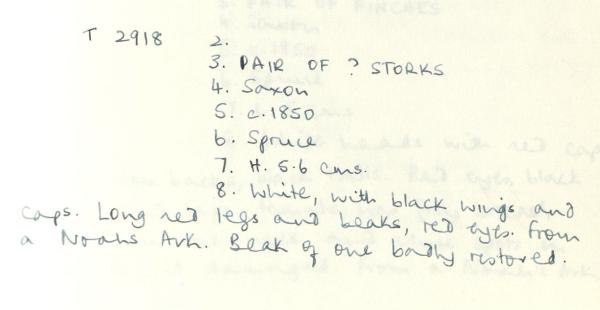 T 2918 2.
3. PAIR OF ? STORKS
4. Saxon
5. c.1850
6. Spruce
7. H. 5.6 cms.
8. White, with black wings and
caps. Long red legs and beaks, red eyes. From
a Noahs Ark. Beak of one badly restored.